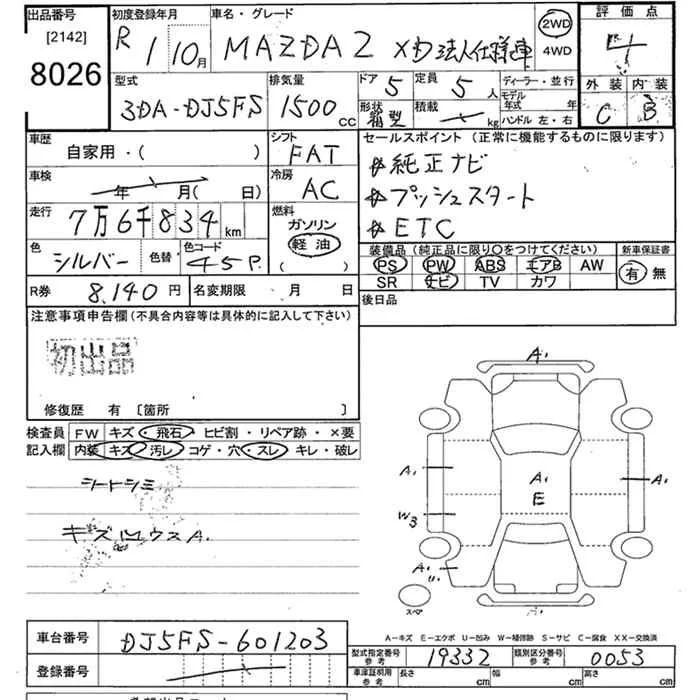 出品番号 初度登録年月 車名・グレード 評価点
[2142] R 1 10月 MAZDA2 XD 法人仕様車 2WD 4
8026 4WD
型式 排気量 ドア 定員 ディーラー・並行 外装 内装
3DA-DJ5FS 1500CC 5 5人 モデル年式 年 C B
形状 箱型 積載 kg ハンドル 左・右
車歴 シフト セールスポイント (正常に機能するものに限ります)
自家用・( ) FAT 純正ナビ
車検 年 月( 日) 冷房 AC プッシュスタート
走行 7万6千834km 燃料 ガソリン ETC
色 シルバー 色替 色コード 45P 軽油 ( )
装備品 (純正品に限り○をつけてください) 新車保証書
PS PW ABS エアB AW 有 無
SR ナビ TV カワ
R券 8,140円 名変期限 月 日 後日品
注意事項申告欄 (不具合内容等は具体的に記入して下さい)
初出品
修復歴 有 〔箇所 〕
検査員 FW キズ・飛石・ヒビ割・リペア跡・×要
記入欄 内装 キズ・汚レ・コゲ・穴・スレ・キレ・破レ
シートシミ
A.
A. A. A.
E
W3
A.
スペア
A-キズ E-エクボ U-凹み W-補修跡 S-サビ C-腐食 XX-交換済
車台番号 DJ5FS-601203
型式指定番号 参考 19332 類別区分番号 参考 0053
登録番号 車庫証明用 参考 長さ cm 幅 cm 高さ cm